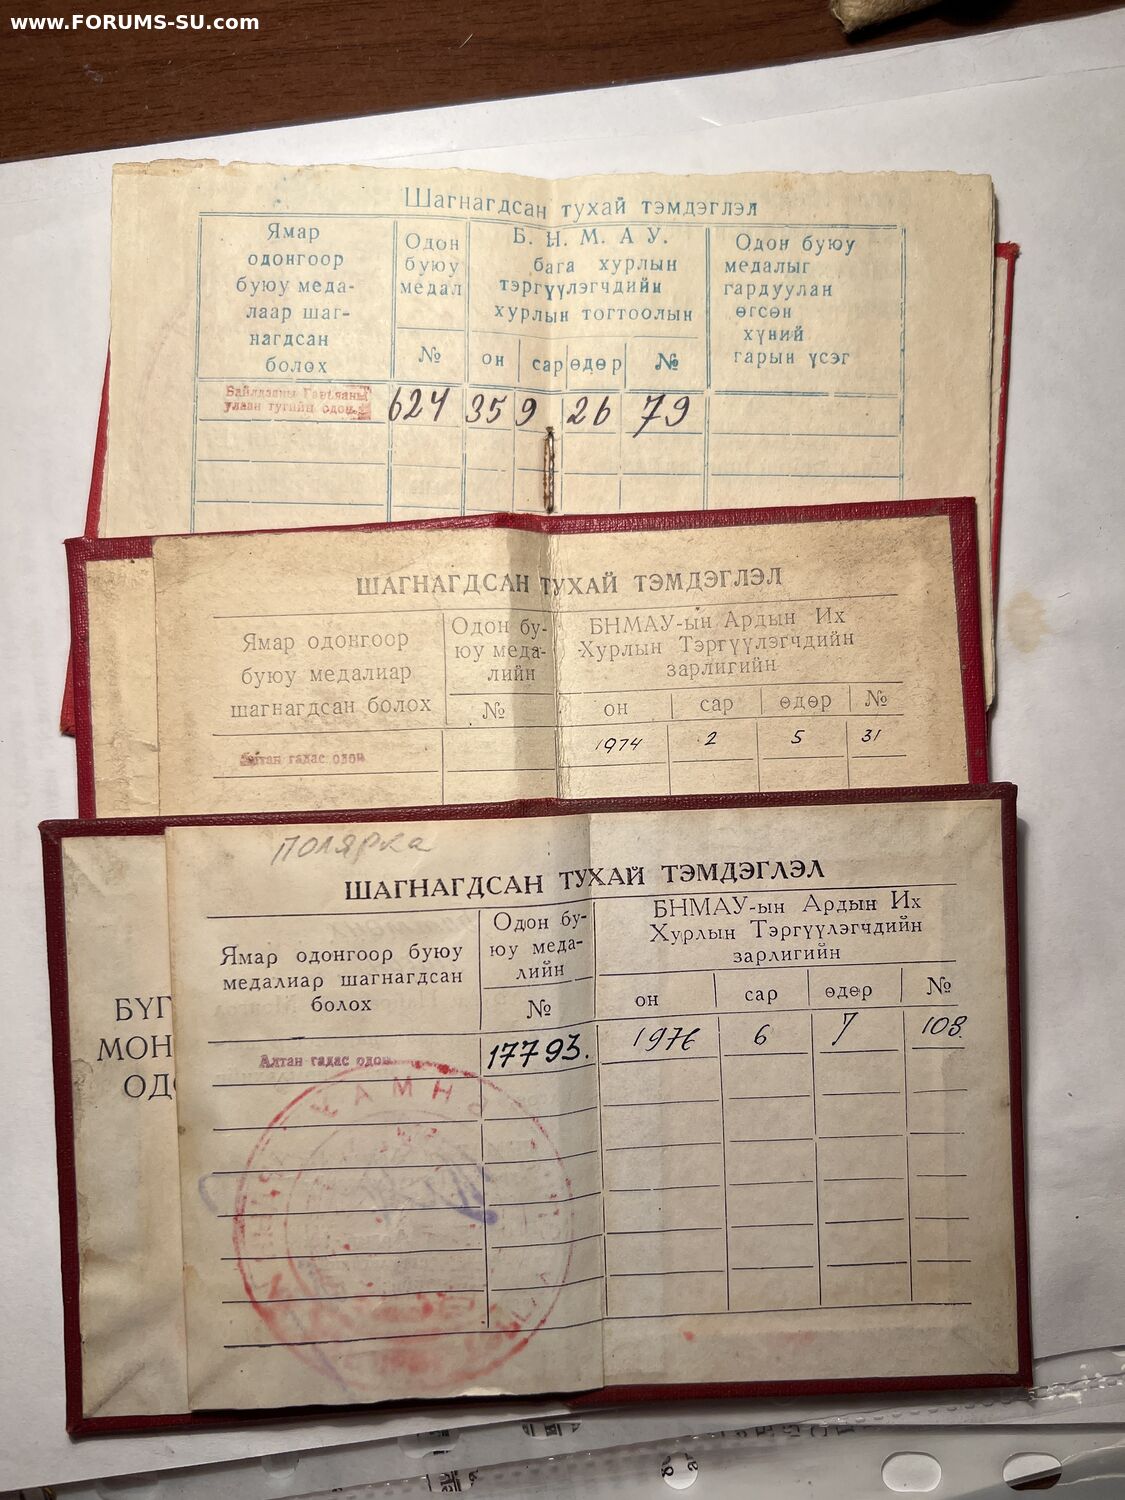 www.FORUMS-SU.com
Шагнагдсан тухай тэмдэглэл
Ямар
одонгоор
буюу меда-
лаар шаг-
нагдсан
болох
Одон
буюу
медал
№
Б. Н. М. А У.
бага хурлын
тэргүүлэгчдийн
хурлын тогтоолын
он сар өдөр №
Одон буюу
медалыг
гардуулан
өгсөн
хүний
гарын үсэг
Байлдааны Гавъяаны
улаан тугийн одон
624 35 9 26 79
ШАГНАГДСАН ТУХАЙ ТЭМДЭГЛЭЛ
Ямар одонгоор
буюу медалиар
шагнагдсан болох
Одон бу-
юу меда-
лийн
№
БНМАУ-ын Ардын Их
Хурлын Тэргүүлэгчдийн
зарлигийн
он сар өдөр №
Алтан гадас одон
1974 2 5 31
полярка
ШАГНАГДСАН ТУХАЙ ТЭМДЭГЛЭЛ
Ямар одонгоор буюу
медалиар шагнагдсан
болох
Одон бу-
юу меда-
лийн
№
БНМАУ-ын Ардын Их
Хурлын Тэргүүлэгчдийн
зарлигийн
он сар өдөр №
Алтан гадас одон
17793. 1976 6 7 108.
БҮГ
МОН
ОДО